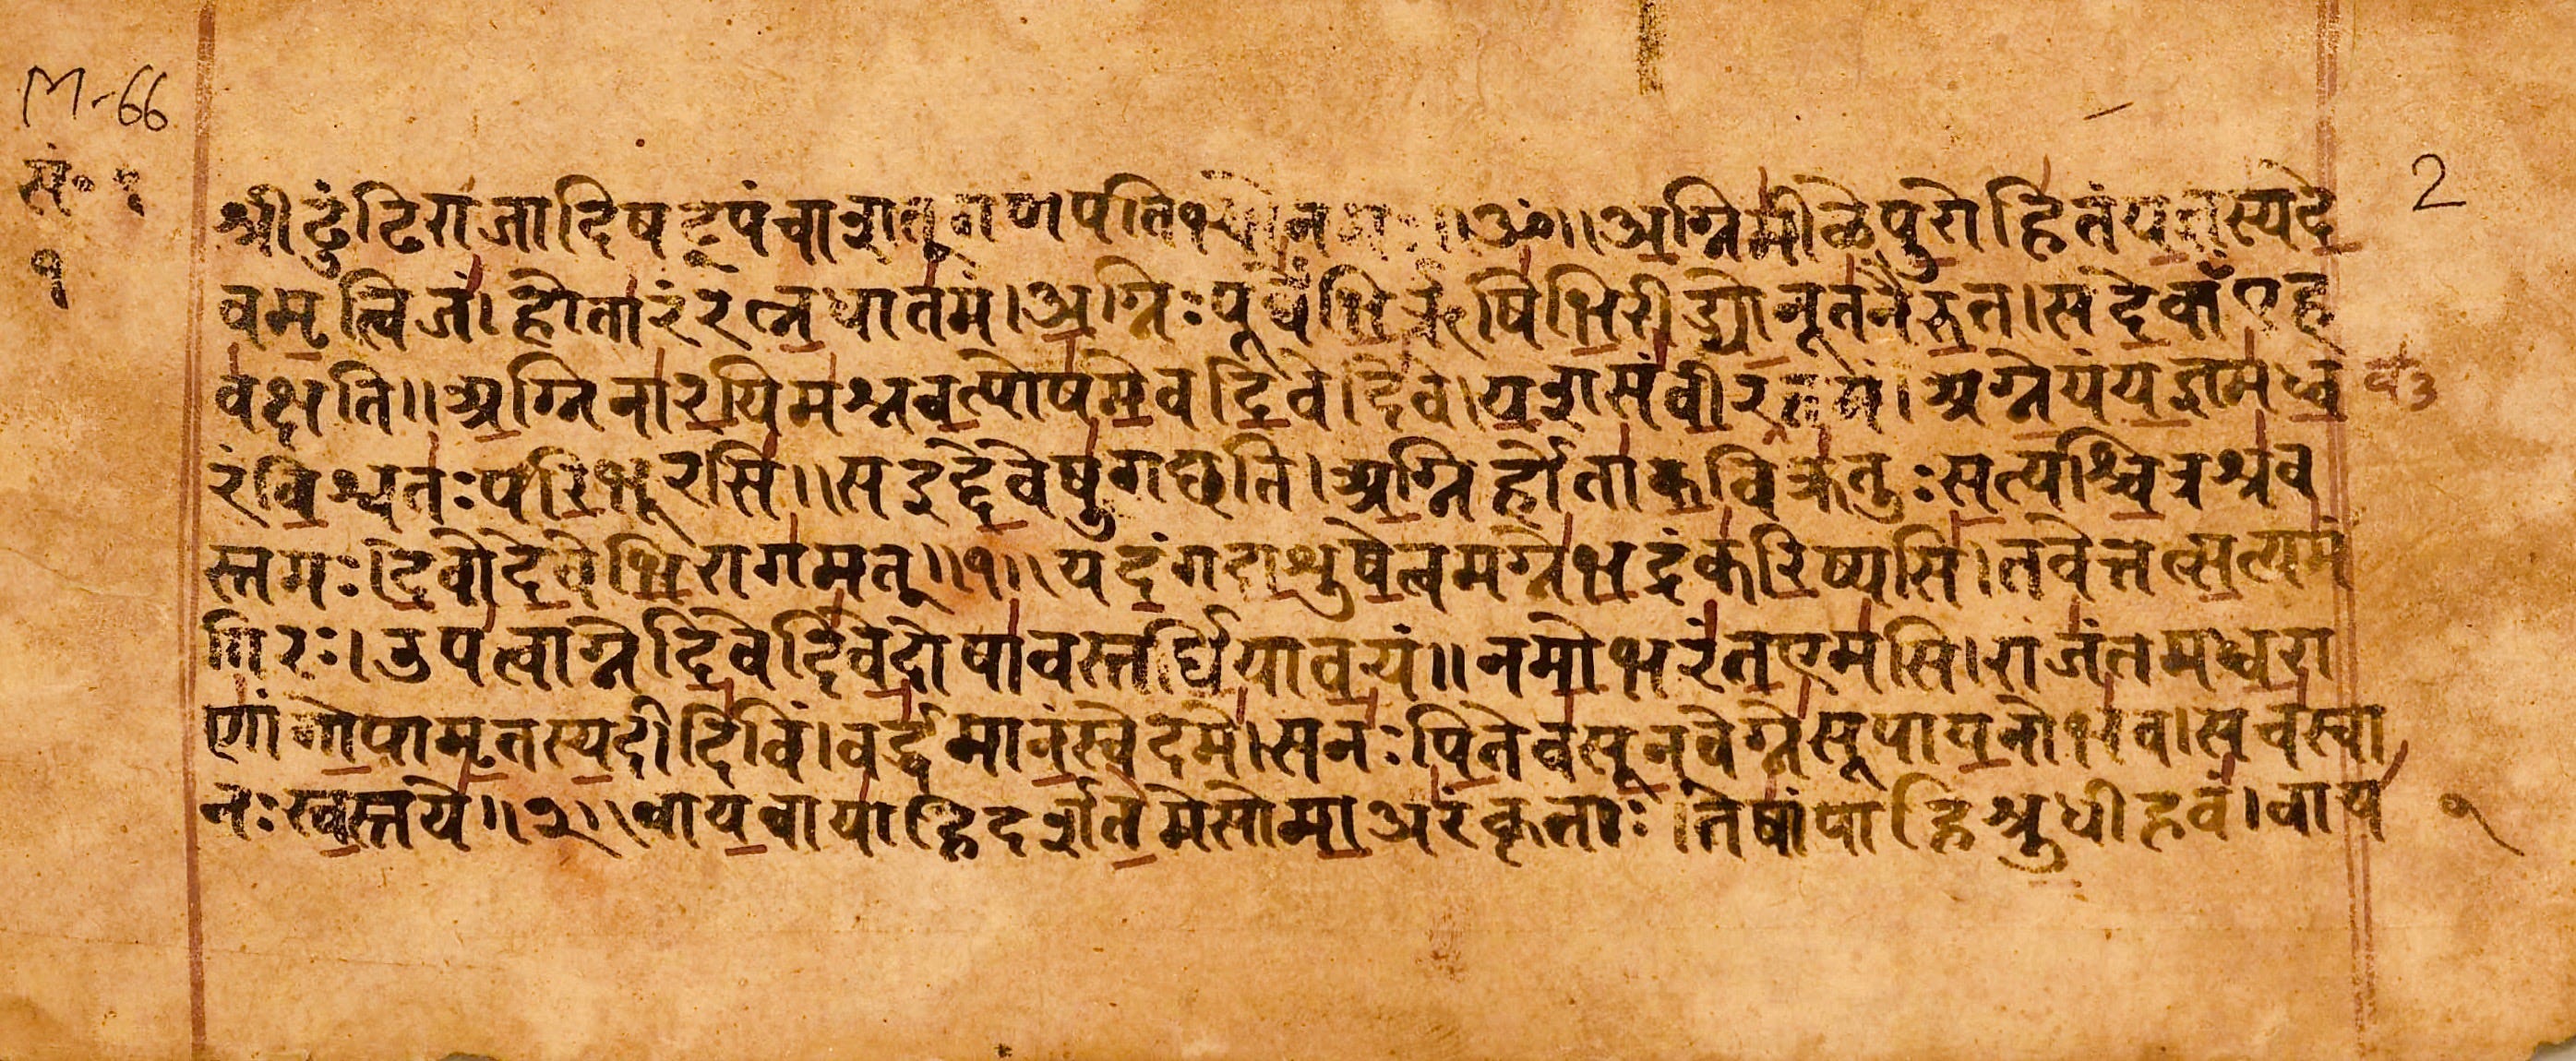 M-66
सं॰ १
१
2
श्रीढुंटिराजादिषट्पंचाशत्गणपतिभ्योनमः॥ॐ॥अग्निमीळेपुरोहितंयज्ञस्यदे
वमृत्विजं।होतारंरत्नधातमं।अग्निःपूर्वेभिर्ऋषिभिरीड्योनूतनैरुत।सदेवाँएह
वक्षति॥अग्निनारयिमश्नवत्पोषमेवदिवेदिवे।यशसंवीरवत्तमं।अग्नेयंयज्ञमध्व
रंविश्वतःपरिभूरसि॥सइद्देवेषुगछति।अग्निर्होताकविक्रतुःसत्यश्चित्रश्रव
स्तमः।देवोदेवेभिरागमत्॥१॥यदंगदाशुषेत्वमग्नेभद्रंकरिष्यसि।तवेत्तत्सत्यमं
गिरः।उपत्वाग्नेदिवेदिवेदोषावस्तर्धियावयं॥नमोभरंतएमसि।राजंतमध्वरा
णांगोपामृतस्यदीदिविं।वर्द्धमानंस्वेदमे।सनःपितेवसूनवेग्नेसूपायनोभव।सचस्वा
नःस्वस्तये॥२॥वायवायाहिदर्शतमेसोमाअरंकृताः।तेषांपाहिश्रुधीहवं।वाय
१